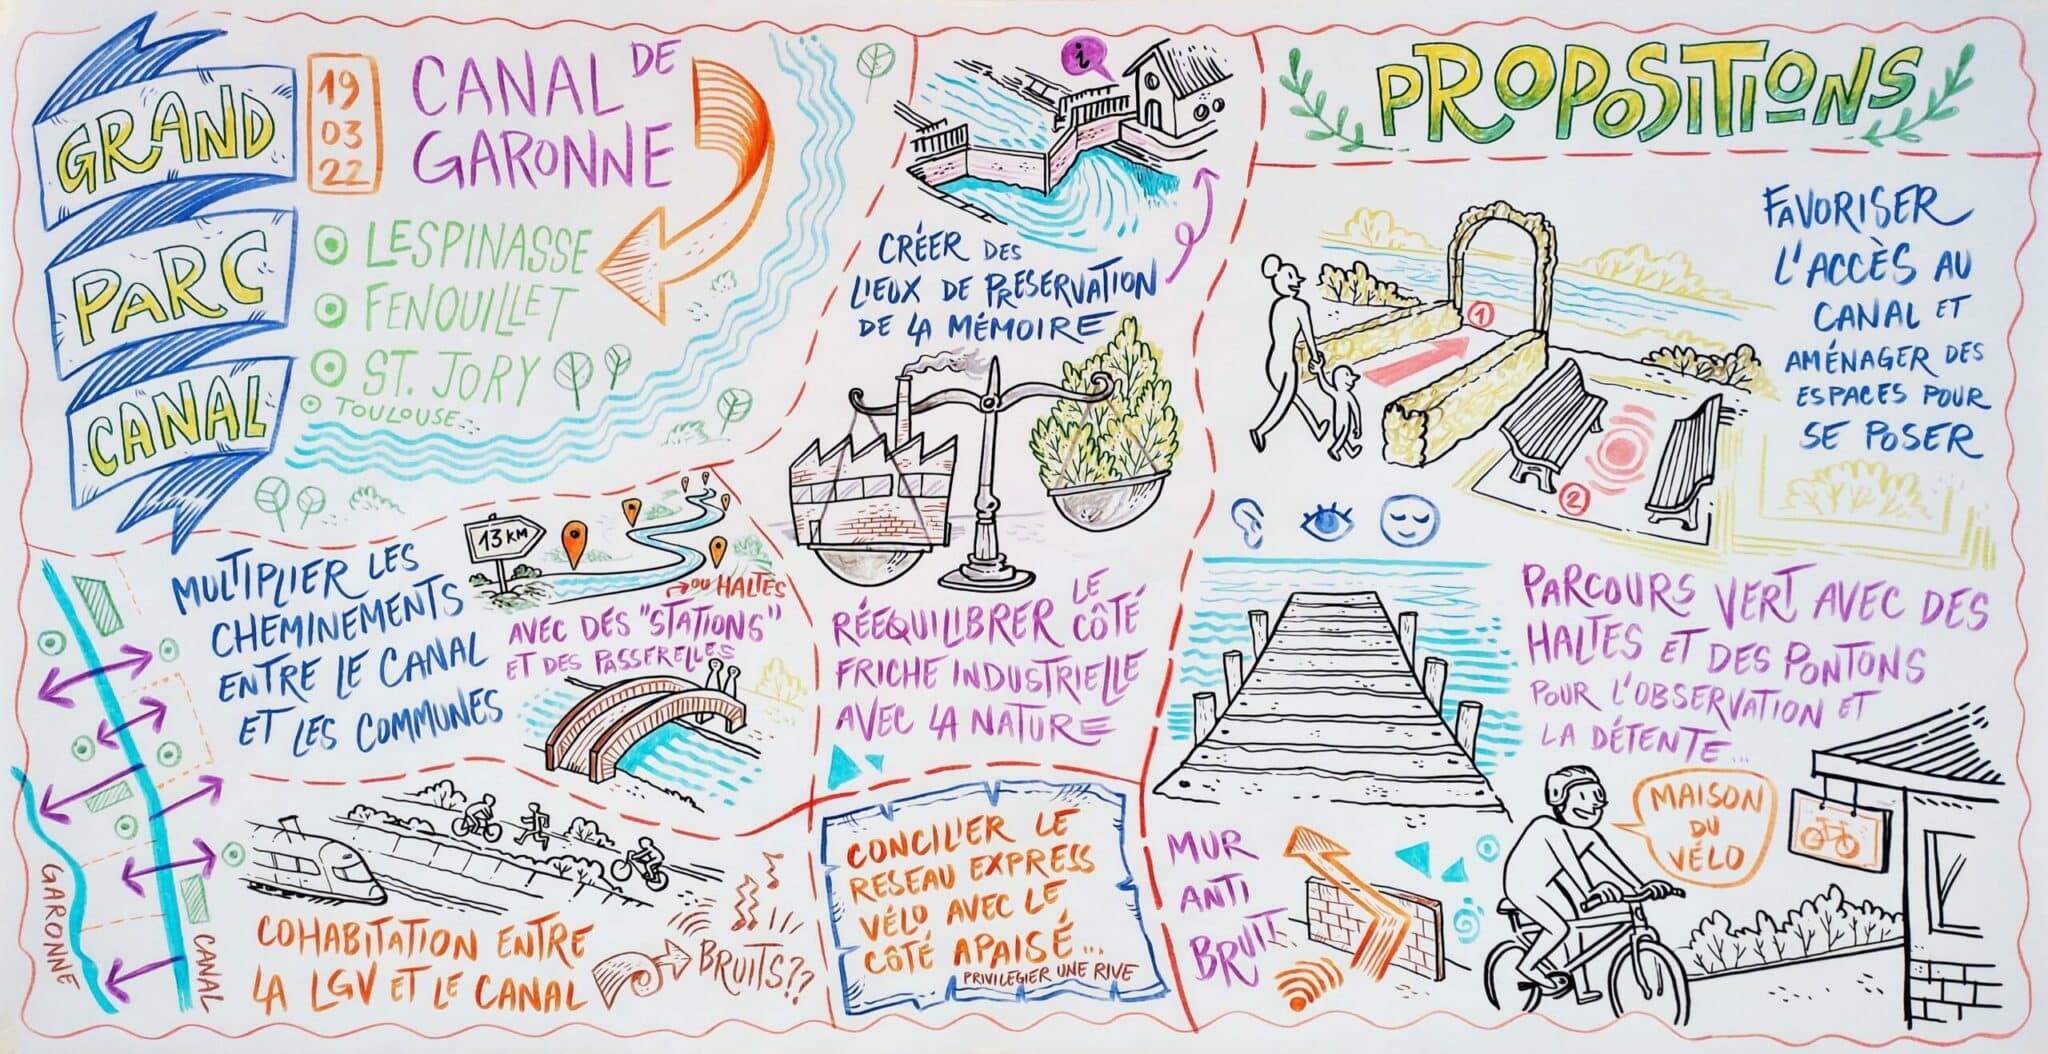 GRAND
PARC
CANAL
19
03
22
CANAL DE
GARONNE
LESPINASSE
FENOUILLET
ST. JORY
TOULOUSE
MULTIPLIER LES
CHEMINEMENTS
ENTRE LE CANAL
ET LES COMMUNES
13 KM
OU HALTES
AVEC DES "STATIONS"
ET DES PASSERELLES
GARONNE
CANAL
COHABITATION ENTRE
LA LGV ET LE CANAL
BRUITS??
i
CRÉER DES
LIEUX DE PRESERVATION
DE LA MÉMOIRE
RÉEQUILIBRER LE CÔTÉ
FRICHE INDUSTRIELLE
AVEC LA NATURE
CONCILIER LE
RESEAU EXPRESS
VÉLO AVEC LE
CÔTÉ APAISÉ...
PRIVILEGIER UNE RIVE
PROPOSITIONS
FAVORISER
L'ACCÈS AU
CANAL ET
AMÉNAGER DES
ESPACES POUR
SE POSER
1
2
PARCOURS VERT AVEC DES
HALTES ET DES PONTONS
POUR L'OBSERVATION ET
LA DÉTENTE...
MUR
ANTI
BRUIT..
MAISON
DU
VÉLO